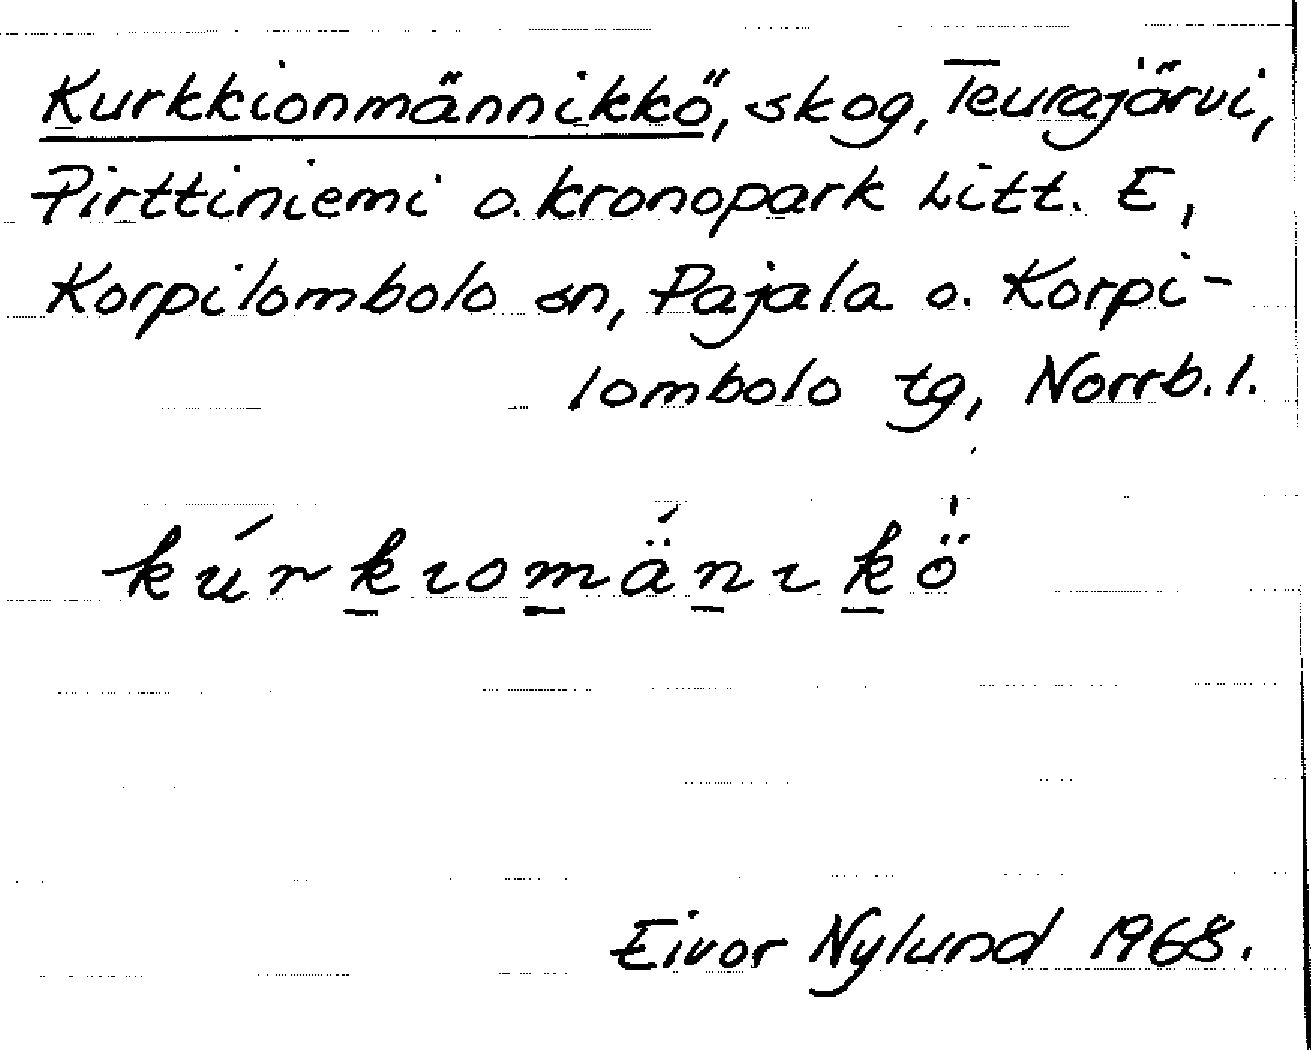 Kurkkionmännikkö, skog, Teurajärvi,
Pirttiniemi o. kronopark Litt. E,
Korpilombolo sn, Pajala o. Korpi-
lombolo tg, Norrb. l.
kúrk̲ıom̲ä́n̲ık̲ö̍
Eivor Nylund 1968.